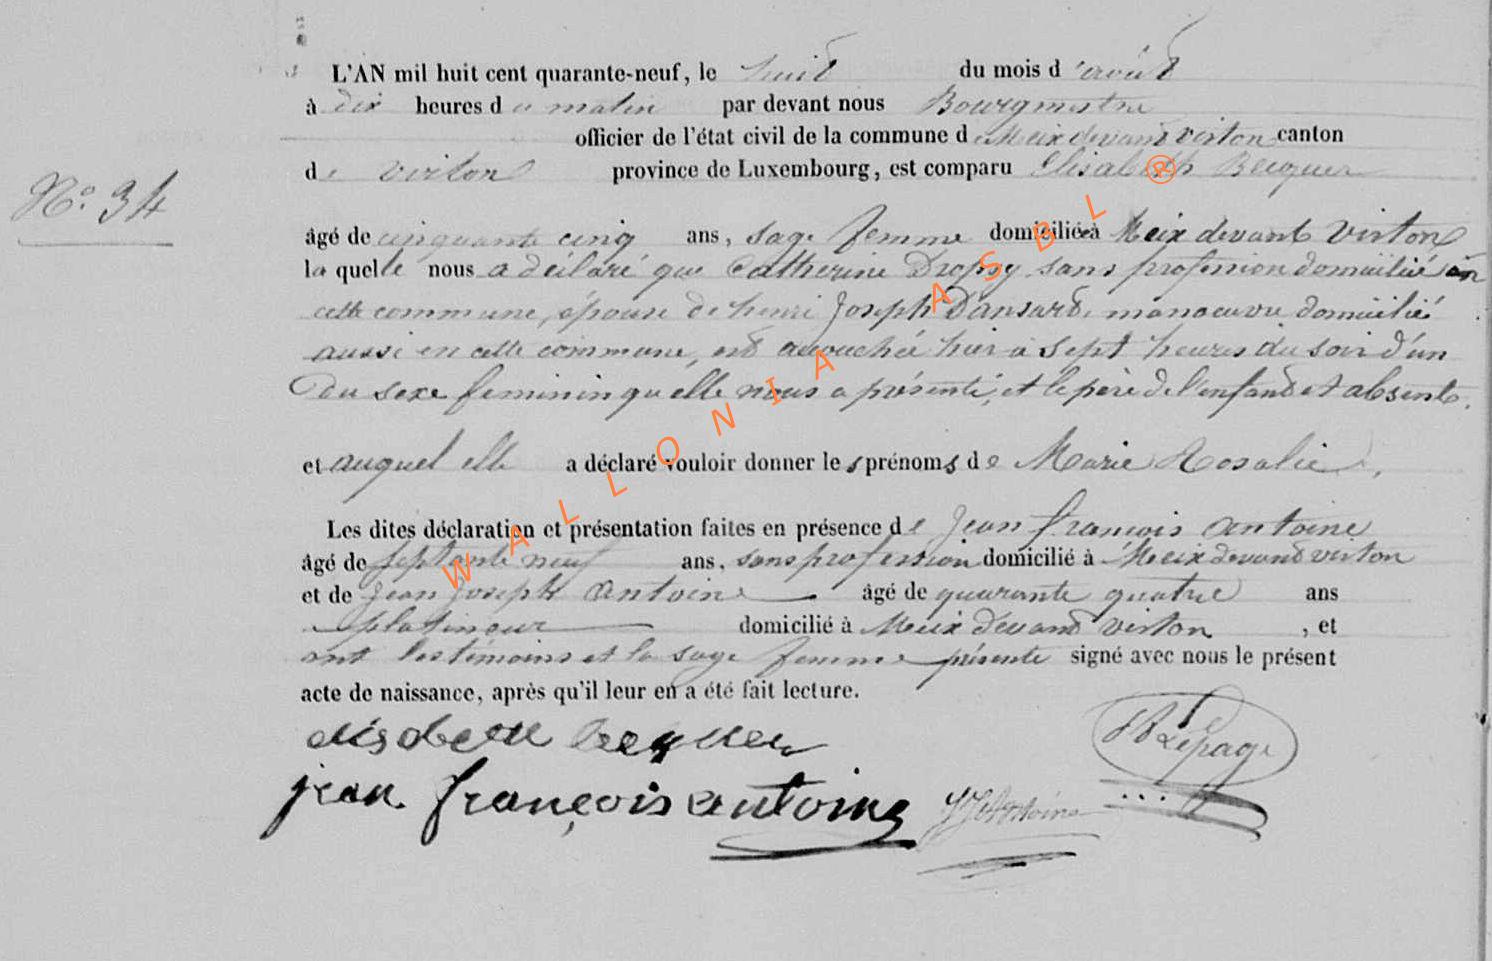 L'AN mil huit cent quarante-neuf, le huit du mois d'août
à dix heures du matin par devant nous Bourgmestre
officier de l'état civil de la commune de Meix devant virton canton
de virton province de Luxembourg, est comparu Elisabeth Becquer
N.° 34
âgé de cinquante cinq ans, sage femme domiciliée à Meix devant Virton
la quelle nous a déclaré que Catherine Dropsy sans profession domicilié en
cette commune, épouse de henri Joseph Dansard, manoeuvre domicilié
aussi en cette commune, est accouchée hier à sept heures du soir d'un
du sexe feminin qu'elle nous a présenté, et le père de l'enfant est absent.
et auquel elle a déclaré vouloir donner les prénoms de Marie Rosalie,
Les dites déclaration et présentation faites en présence de Jean françois antoine
âgé de septante neuf ans, sans profession domicilié à Meix devand virton
et de Jean Joseph Antoine âgé de quarante quatre ans
platineur domicilié à Meix devand virton, et
ont les temoins et la sage femme présente signé avec nous le présent
acte de naissance, après qu'il leur en a été fait lecture.
elisabeth becquer
Lepage
jean françois antoine JJAntoine
WALLONIA ASBL ®